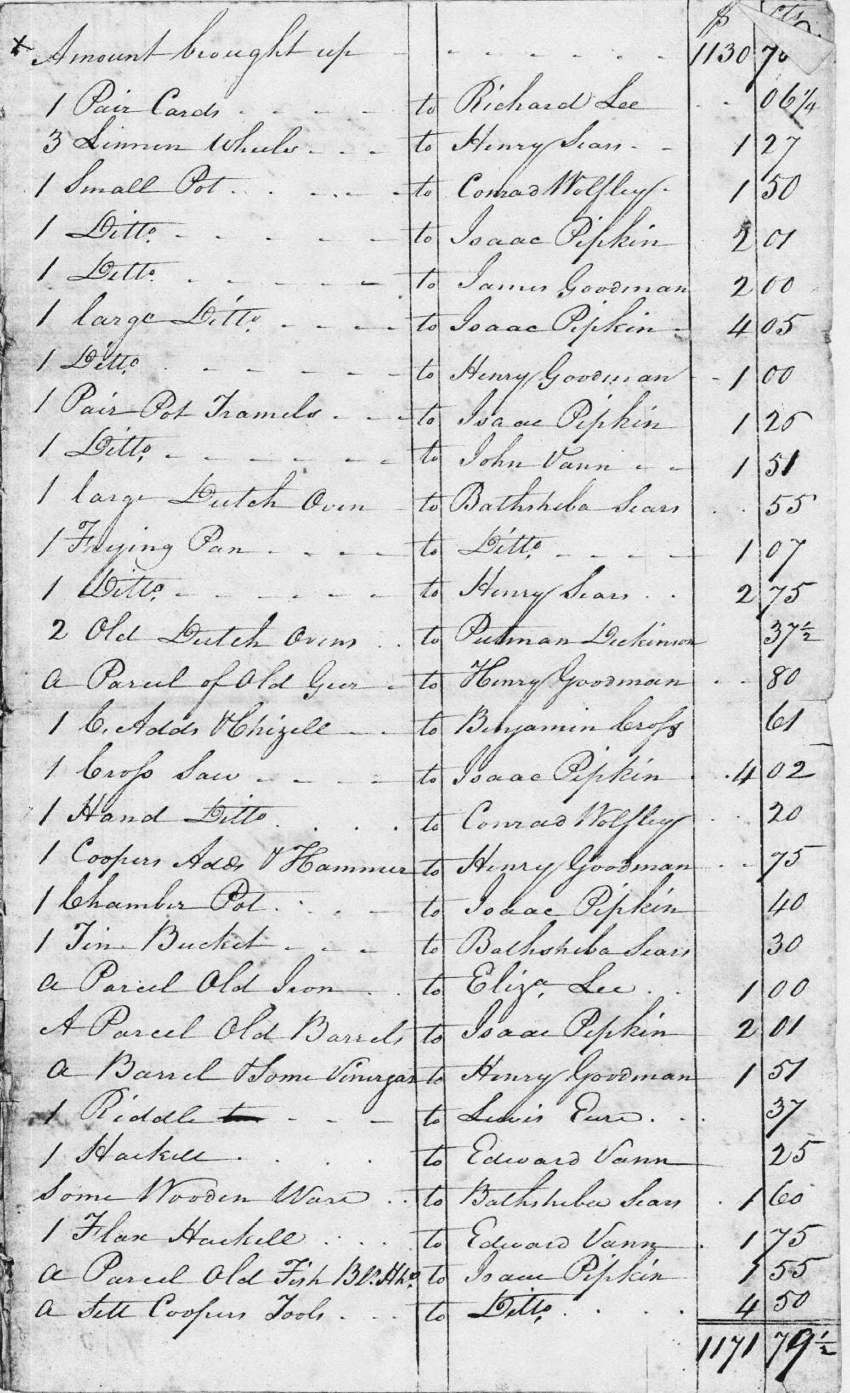 $ cts
x Amount brought up 1130 70
1 Pair Cards to Richard Lee 06 1/4
3 Linnen Wheels to Henry Sears 1 27
1 Small Pot to Conrad Wolfley 1 50
1 Ditto to Isaac Pipkin 2 01
1 Ditto to James Goodman 2 00
1 large Ditto to Isaac Pipkin 4 05
1 Ditto to Henry Goodman 1 00
1 Pair Pot Tramels to Isaac Pipkin 1 25
1 Ditto to John Vann 1 51
1 large Dutch Oven to Bathsheba Sears 55
1 Frying Pan to Ditto 1 07
1 Ditto to Henry Sears 2 75
2 Old Dutch Ovens to Putman Dickinson 37 1/2
a Parcel of Old Geer to Henry Goodman 80
1 C. Adds & Chizell to Benjamin Cross 61
1 Cross Saw to Isaac Pipkin 4 02
1 Hand Ditto to Conrad Wolfley 20
1 Coopers Adds & Hammer to Henry Goodman 75
1 Chamber Pot to Isaac Pipkin 40
1 Tin Bucket to Bathsheba Sears 30
a Parcel Old Iron to Eliza. Lee 1 00
A Parcel Old Barrels to Isaac Pipkin 2 01
a Barrel & Some Vinergar to Henry Goodman 1 51
1 Riddle to Lewis Eure 37
1 Hackell to Edward Vann 25
Some Wooden Ware to Bathsheba Sears 1 60
1 Flax Hackell to Edward Vann 1 75
a Parcel Old Fish to Isaac Pipkin 1 55
a Sett Coopers Tools to Ditto 4 50
1171 79 1/2